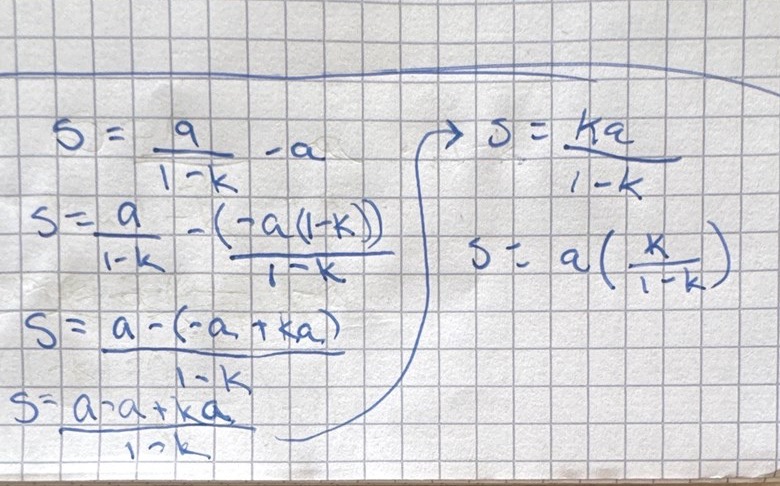 S = a/(1-k) - a
S = a/(1-k) - (-a(1-k))/(1-k)
S = (a-(-a+ka))/(1-k)
S = (a-a+ka)/(1-k)
→ S = ka/(1-k)
S = a(k/(1-k))